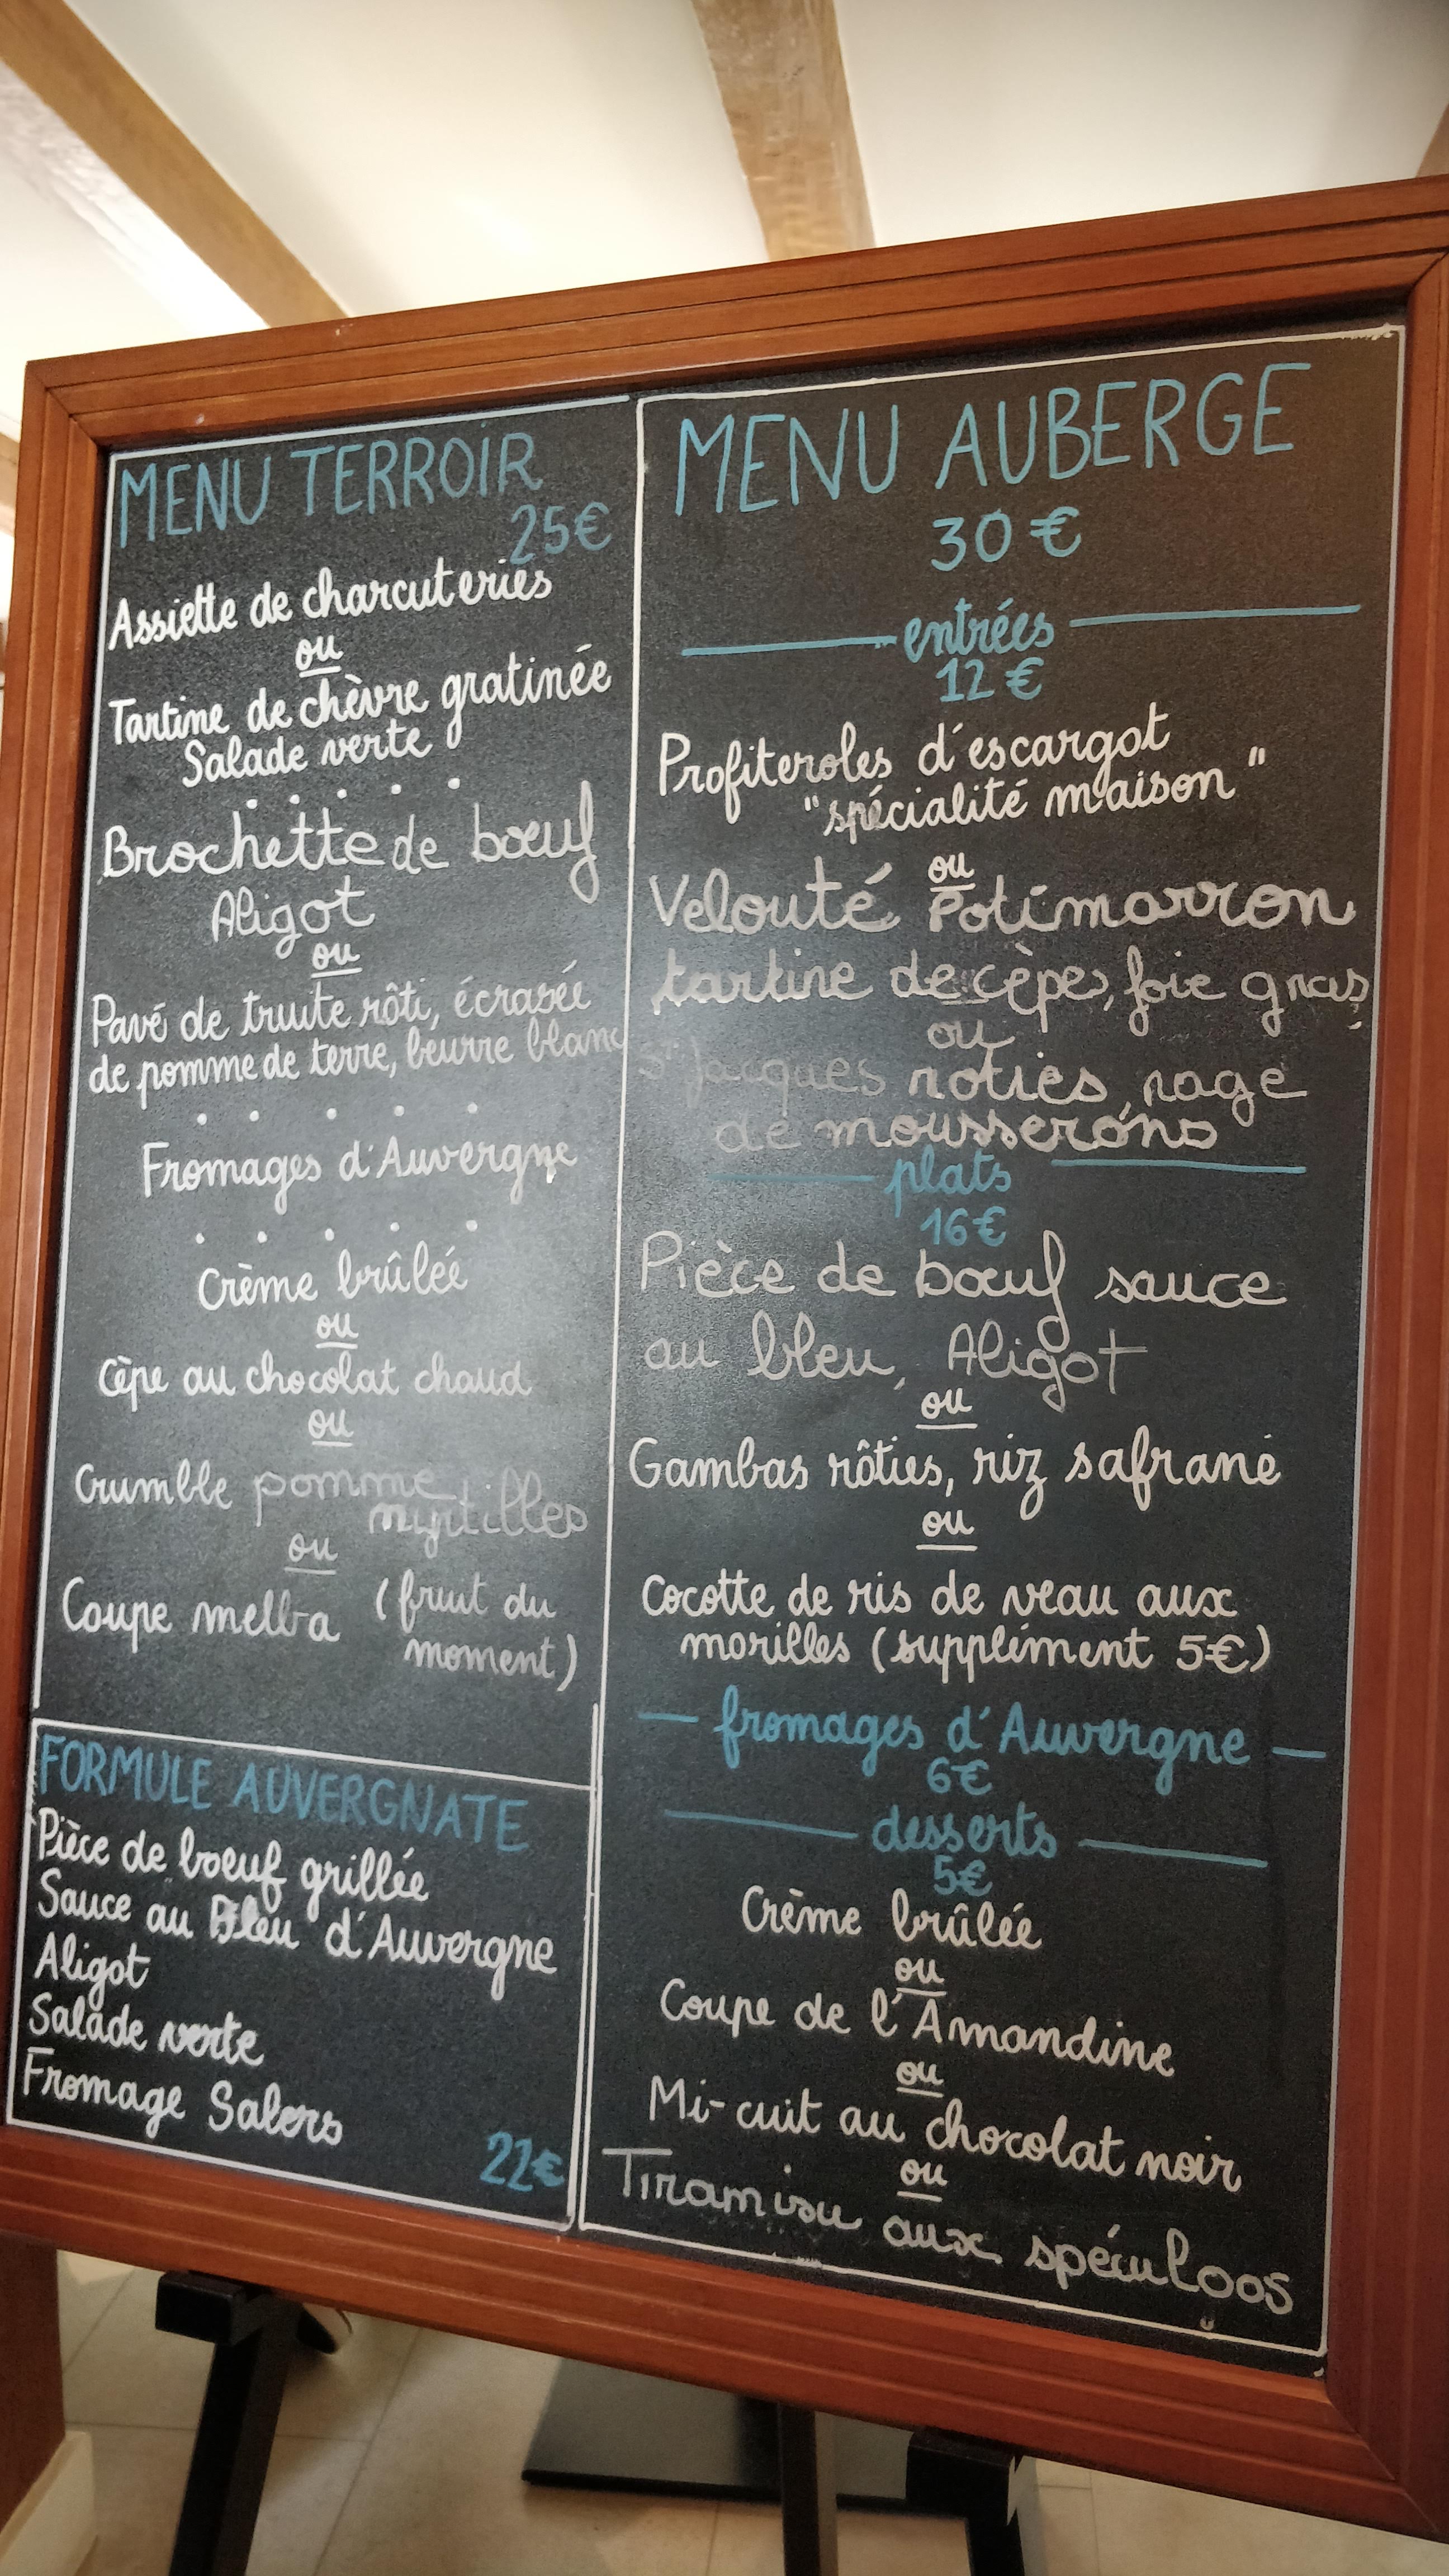 MENU TERROIR
25€
Assiette de charcuteries
ou
Tartine de chèvre gratinée
Salade verte
. . . . .
Brochette de bœuf
Aligot
ou
Pavé de truite rôti, écrasée
de pomme de terre, beurre blanc
. . . . .
Fromages d'Auvergne
. . . . .
Crème brûlée
ou
Cêpe au chocolat chaud
ou
Crumble pomme
myrtilles
ou
Coupe melba (fruit du
moment)
FORMULE AUVERGNATE
Pièce de bœuf grillée
Sauce au Bleu d'Auvergne
Aligot
Salade verte
Fromage Salers
22€
MENU AUBERGE
30€
entrées
12€
Profiteroles d'escargot
"spécialité maison"
ou
Velouté Potimarron
tartine de cèpes, foie gras
ou
St Jacques roties, nage
de mousserons
plats
16€
Pièce de bœuf sauce
au bleu, Aligot
ou
Gambas rôties, riz safrané
ou
Cocotte de ris de veau aux
morilles (supplément 5€)
fromages d'Auvergne
6€
desserts
5€
Crème brûlée
ou
Coupe de l'Amandine
ou
Mi-cuit au chocolat noir
ou
Tiramisu aux spéculoos